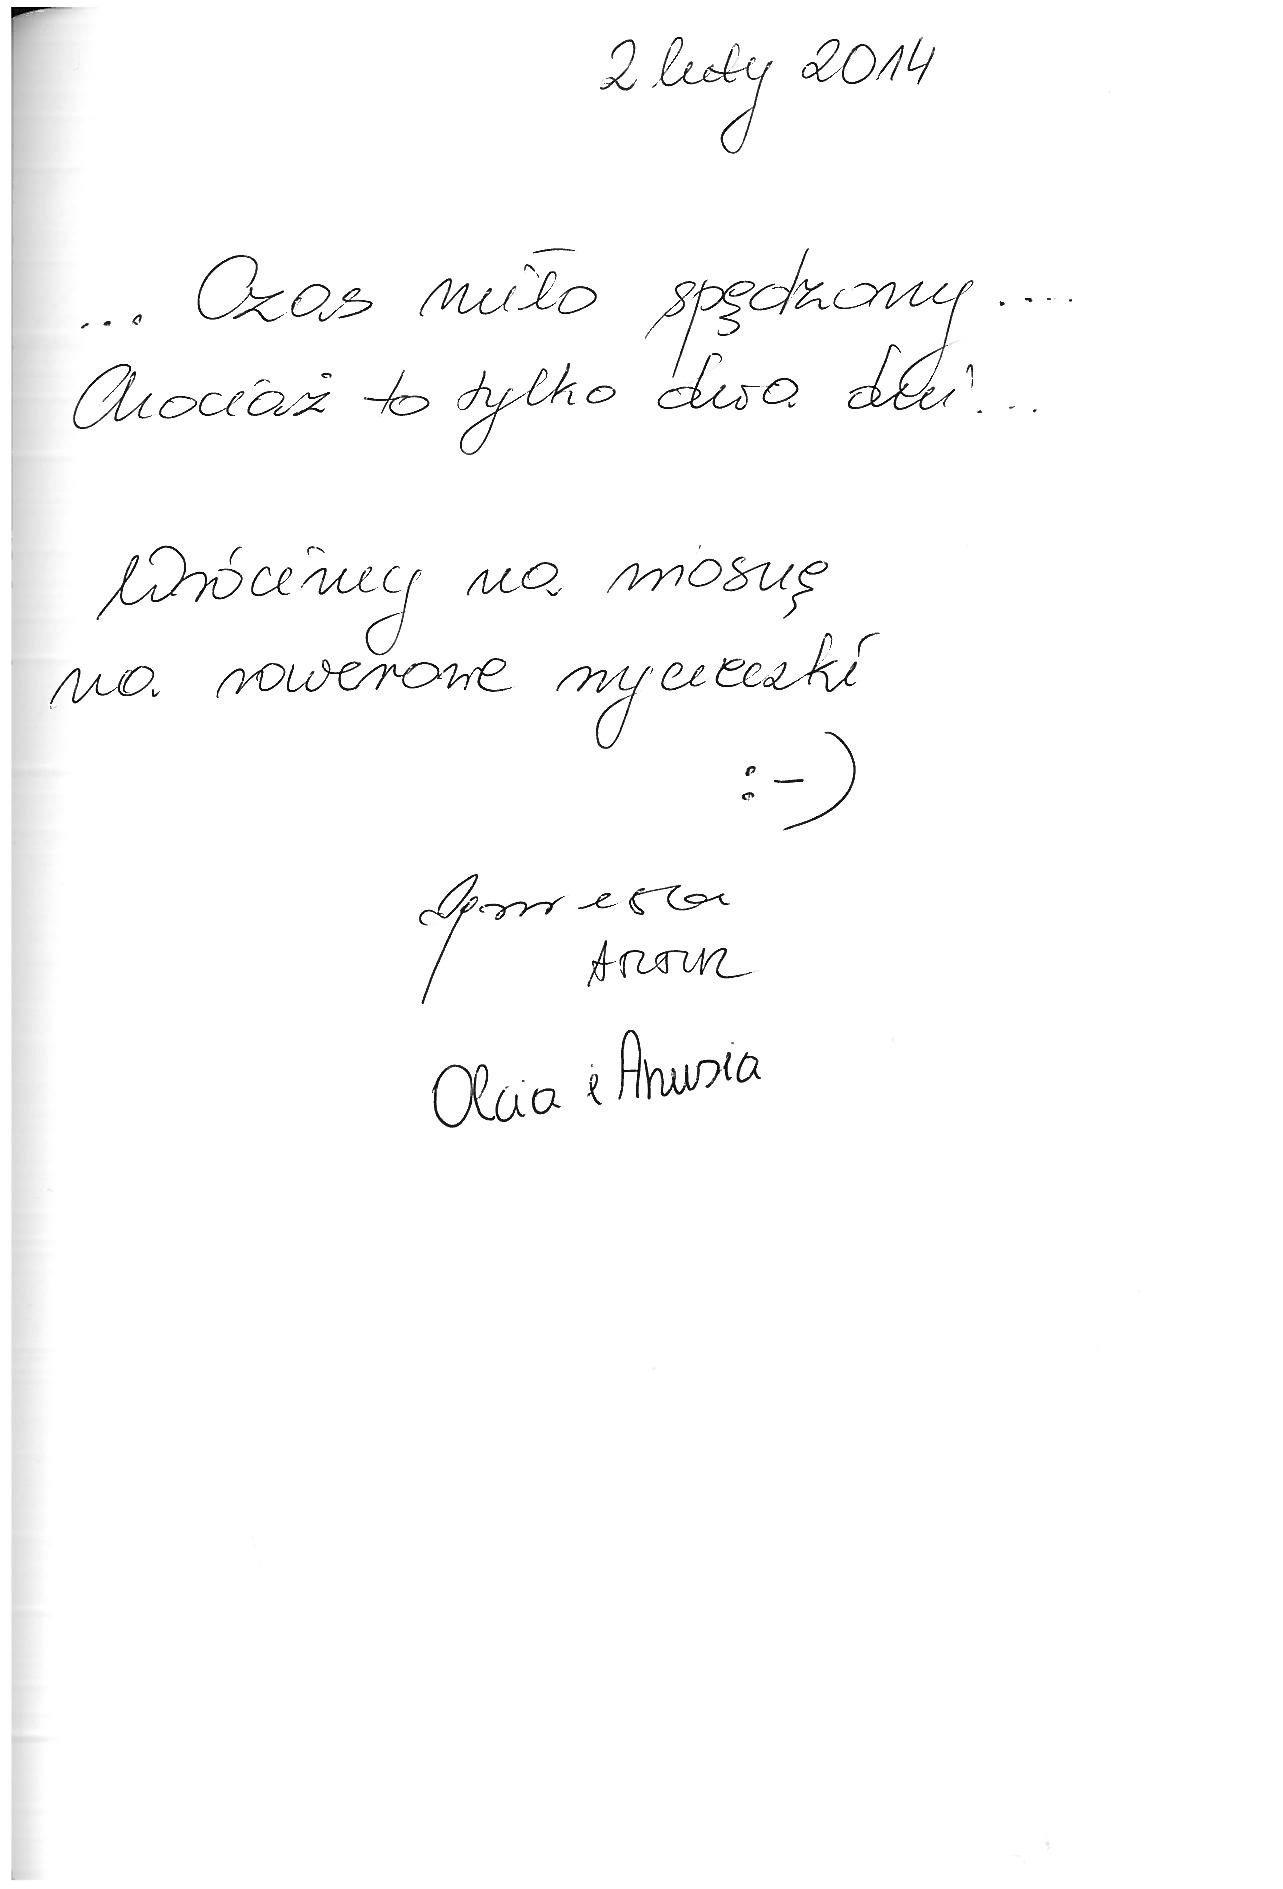 2 luty 2014
... Czas miło spędzony ....
Chociaż to tylko dwa dni ...
Wrócimy na wiosnę
na rowerowe wycieczki
:-)
Agnieszka
Artur
Olcia i Anusia